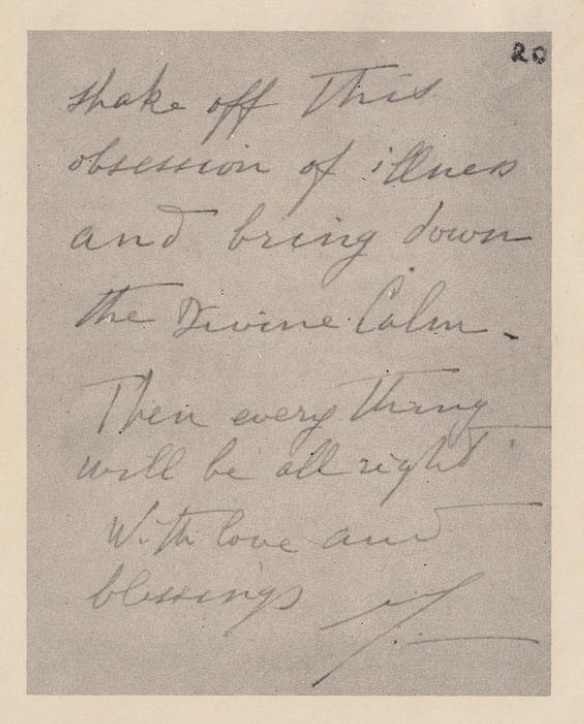 20
shake off this
obsession of illness
and bring down
the Divine Calm.
Then every thing
will be all right
With love and
blessings